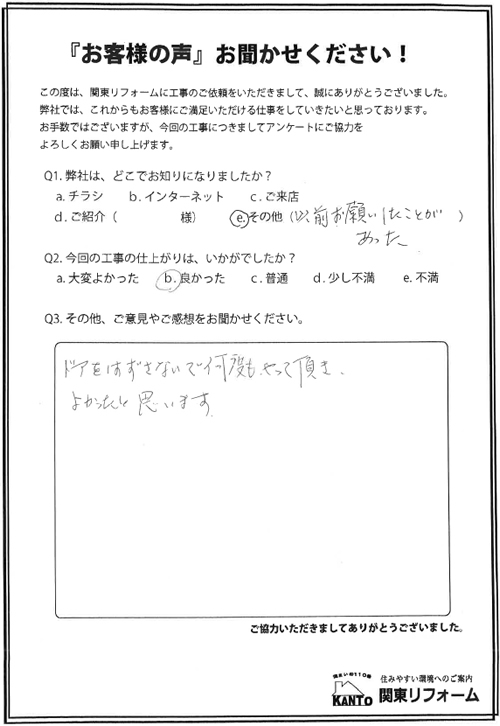 『お客様の声』お聞かせください！
この度は、関東リフォームに工事のご依頼をいただきまして、誠にありがとうございました。
弊社では、これからもお客様にご満足いただける仕事をしていきたいと思っております。
お手数ではございますが、今回の工事につきましてアンケートにご協力を
よろしくお願い申し上げます。
Q1. 弊社は、どこでお知りになりましたか？
a. チラシ b. インターネット c. ご来店
d. ご紹介（ 様） e. その他（以前お願いしたことが ）
あった
Q2. 今回の工事の仕上がりは、いかがでしたか？
a. 大変よかった b. 良かった c. 普通 d. 少し不満 e. 不満
Q3. その他、ご意見やご感想をお聞かせください。
ドアをはずさないで何度もやって頂き、
よかったと思います
ご協力いただきましてありがとうございました。
住まいの110番
KANTO
住みやすい環境へのご案内
関東リフォーム